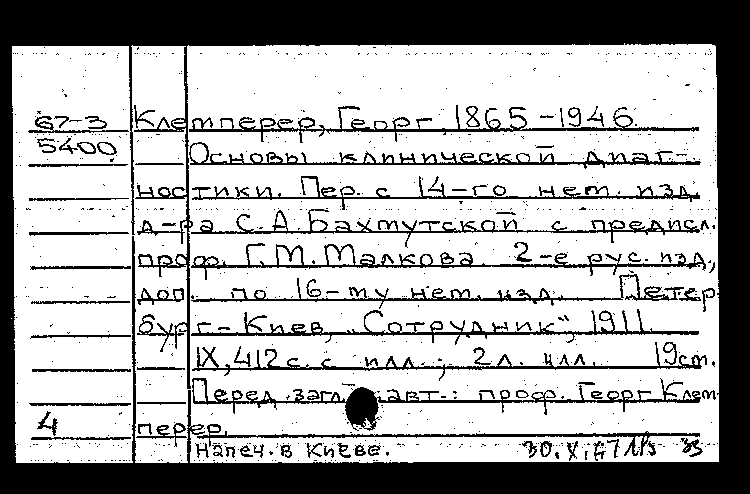 67-3 Клемперер, Георг, 1865-1946.
5400 Основы клинической диаг-
ностики. Пер. с 14-го нем. изд.
д-ра С.А. Бахмутской с предисл.
проф. Г.М. Малкова. 2-е рус. изд.,
доп. по 16-му нем. изд. Петер-
бург-Киев, "Сотрудник", 1911.
IX, 412 с. с илл.; 2 л. илл. 19 cm.
Перед загл. авт.: проф. Георг Клем-
4 перер.
Напеч. в Киеве. 30.X.67